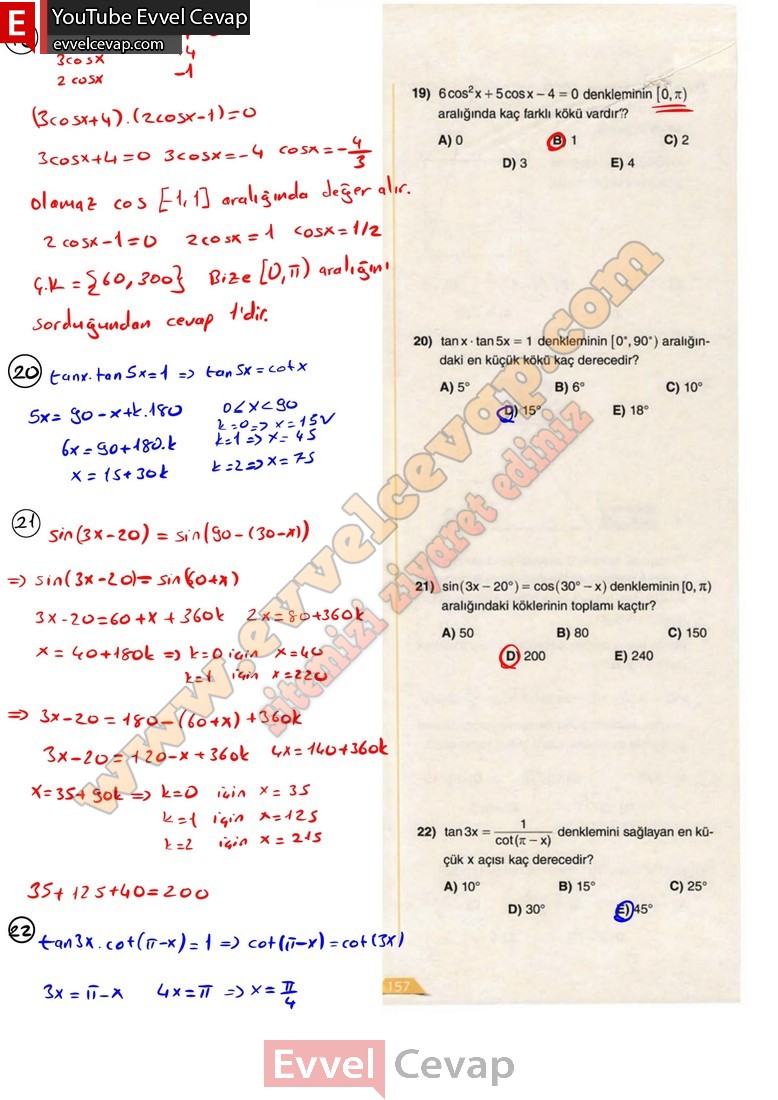 E YouTube Evvel Cevap
evvelcevap.com
3cosx 4
2cosx -1
(3cosx+4).(2cosx-1)=0
3cosx+4=0 3cosx=-4 cosx=-4/3
olamaz cos [-1,1] aralığında değer alır.
2cosx-1=0 2cosx=1 cosx=1/2
Ç.K={60,300} Bize [0,π) aralığını
sorduğundan cevap 1'dir.
20 tanx.tan5x=1 => tan5x=cotx
5x=90-x+k.180 0<x<90
k=0=>x=15√
6x=90+180.k k=1=>x=45
x=15+30k k=2=>x=75
21 sin(3x-20)=sin(90-(30-x))
=> sin(3x-20)=sin(60+x)
3x-20=60+x+360k 2x=80+360k
x=40+180k => k=0 için x=40
k=1 için x=220
=> 3x-20=180-(60+x)+360k
3x-20=120-x+360k 4x=140+360k
x=35+90k => k=0 için x=35
k=1 için x=125
k=2 için x=215
35+125+40=200
22 tan3x.cot(π-x)=1 => cot(π-x)=cot(3x)
3x=π-x 4x=π => x=π/4
19) 6cos²x+5cosx-4=0 denkleminin [0,π)
aralığında kaç farklı kökü vardır?
A) 0 B) 1 C) 2
D) 3 E) 4
20) tanx·tan5x=1 denkleminin [0°,90°) aralığın-
daki en küçük kökü kaç derecedir?
A) 5° B) 6° C) 10°
D) 15° E) 18°
21) sin(3x-20°)=cos(30°-x) denkleminin [0,π)
aralığındaki köklerinin toplamı kaçtır?
A) 50 B) 80 C) 150
D) 200 E) 240
22) tan3x=1/cot(π-x) denklemini sağlayan en kü-
çük x açısı kaç derecedir?
A) 10° B) 15° C) 25°
D) 30° E) 45°
157
www.evvelcevap.com
sitemizi ziyaret ediniz
Evvel Cevap